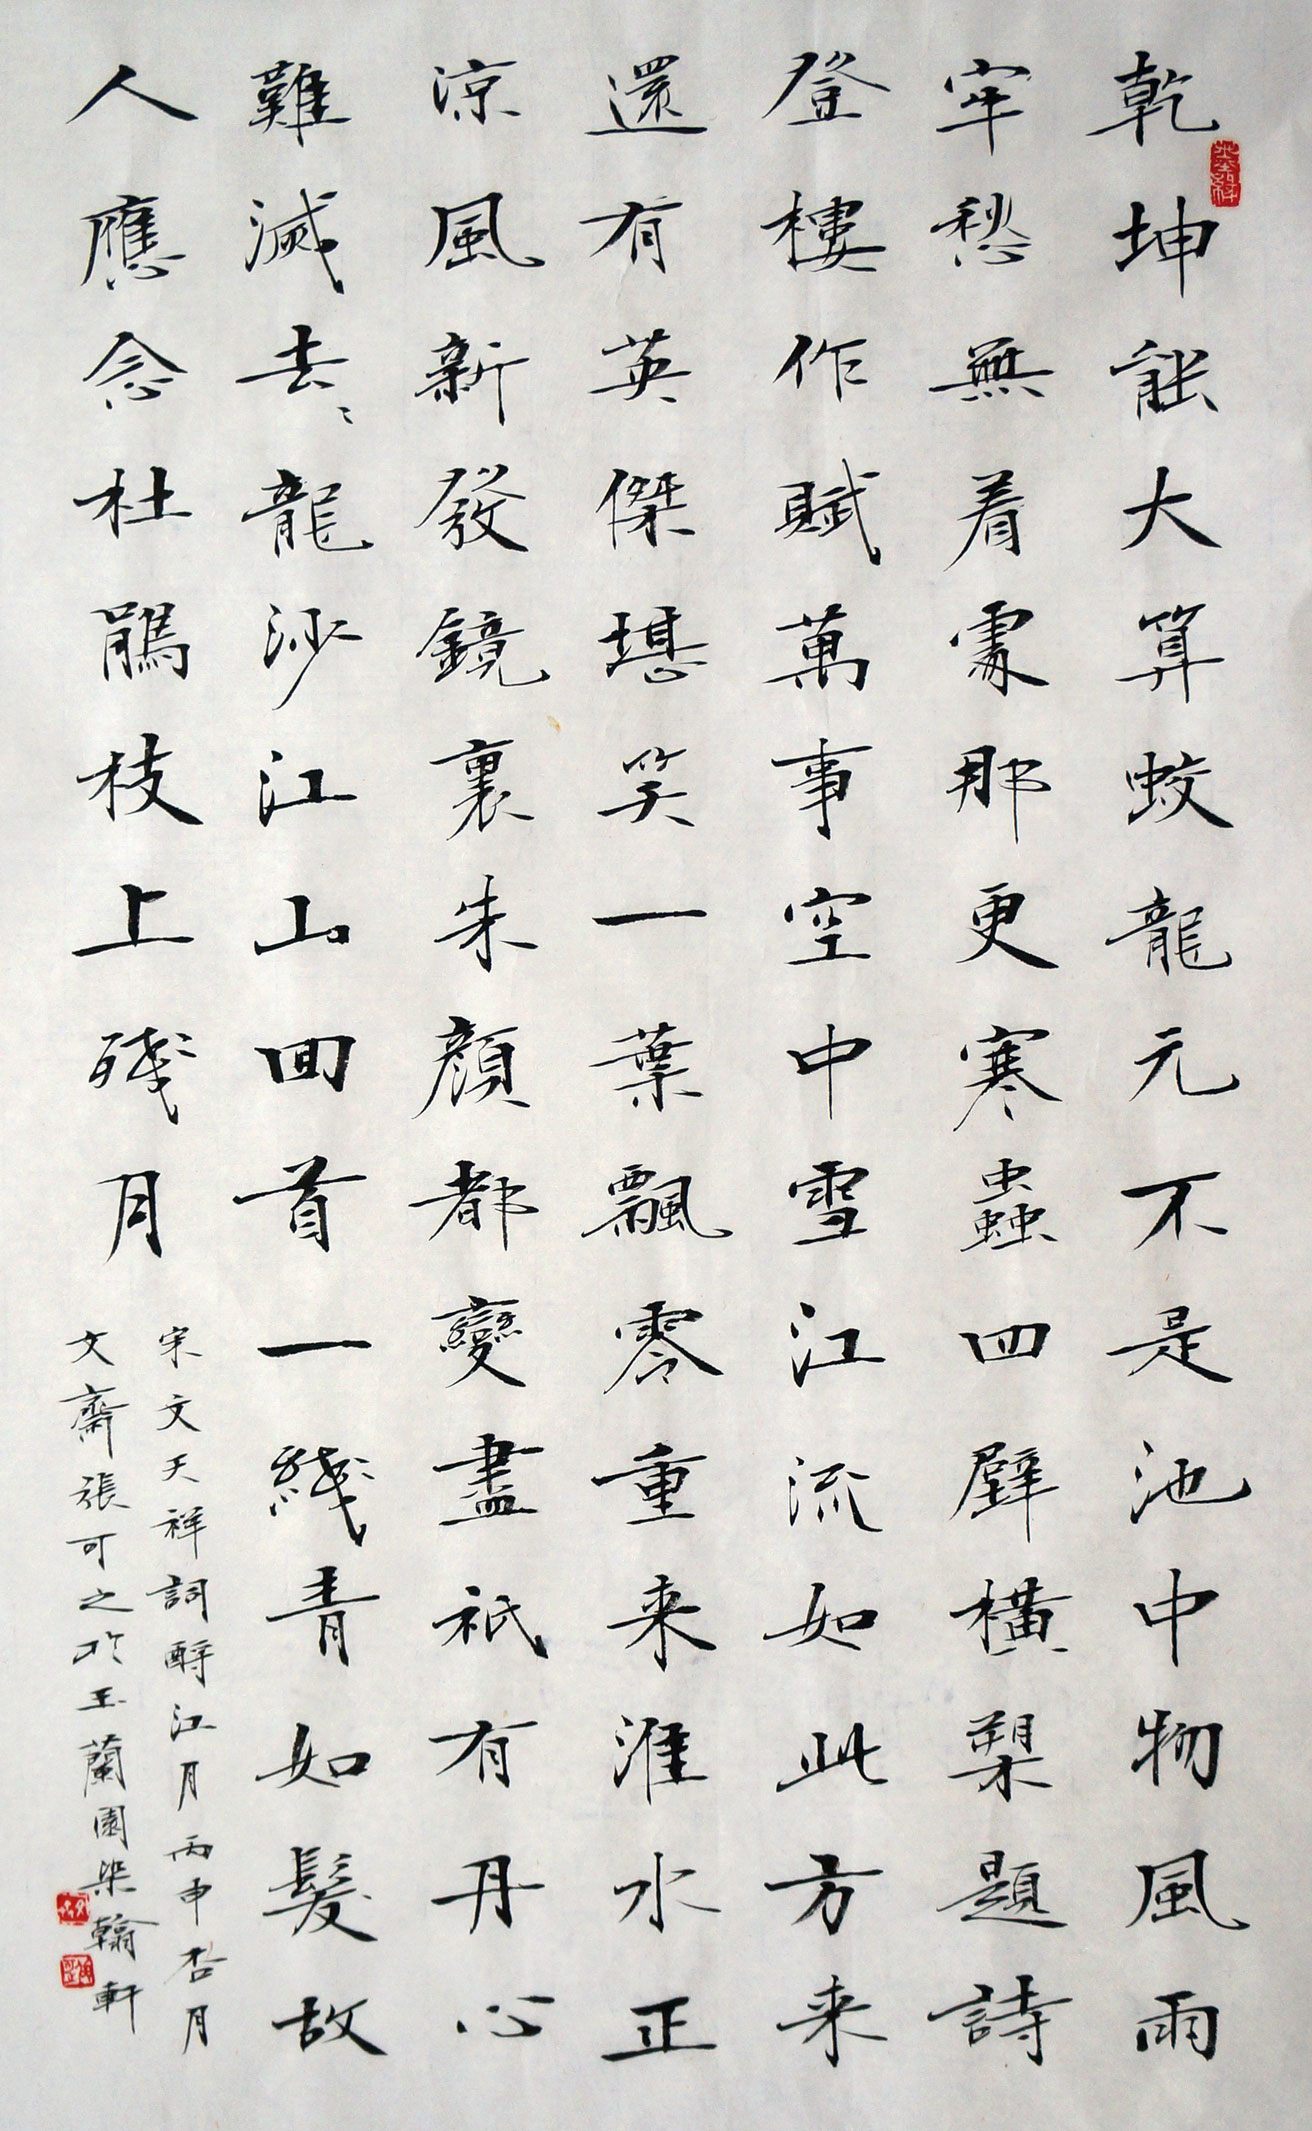 乾坤能大算蛟龍元不是池中物風雨
牢愁無着處那更寒蟲四壁橫槊題詩
登樓作賦萬事空中雪江流如此方来
還有英傑堪笑一葉飄零重来淮水正
涼風新發鏡裏朱顏都變盡祇有丹心
難滅去〻龍沙江山囬首一綫青如髮故
人應念杜鵑枝上殘月
宋文天祥詞酹江月丙申杏月
文齋張可之於玉蘭園染翰軒